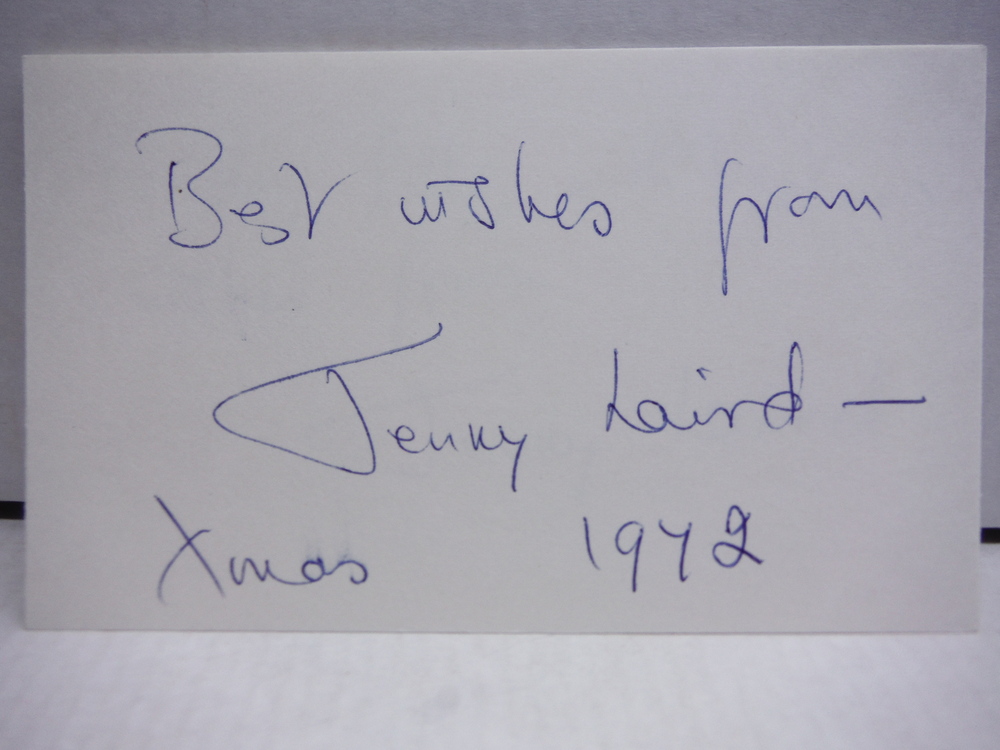 Best wishes from
Jenny Laird —
Xmas 1972